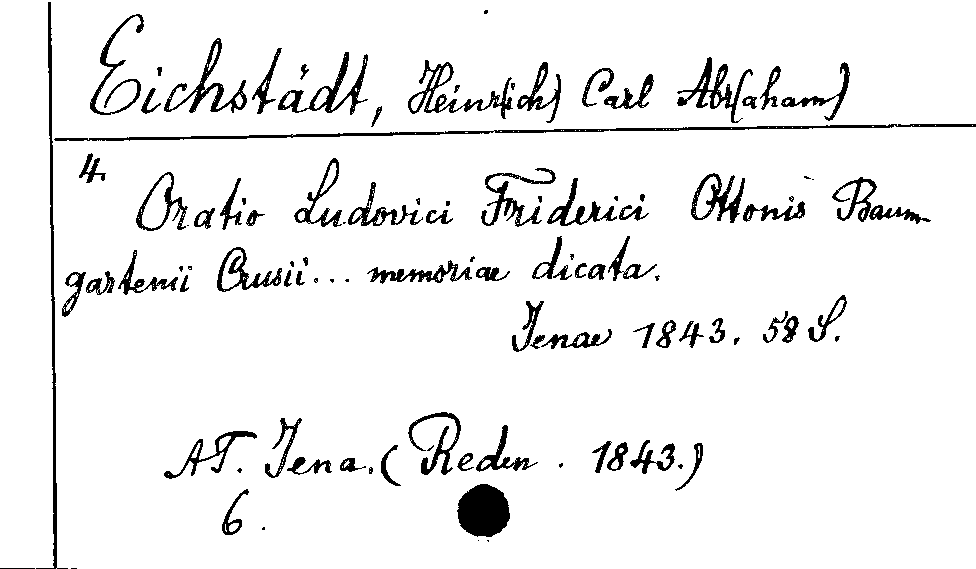 Eichstädt, Heinr(ich) Carl Abr(aham)
4.
Oratio Ludovici Friderici Ottonis Baum-
gartenii Crusii... memoriae dicata.
Jenae 1843. 58 S.
AT. Jena. (Reden. 1843.)
6.